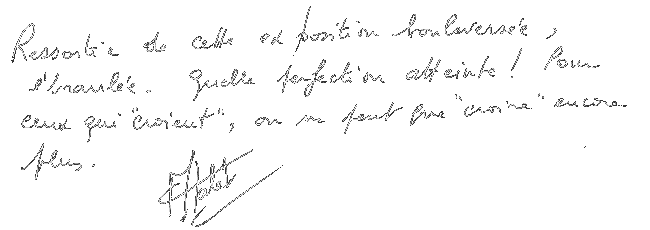 Ressortie de cette exposition bouleversée,
ébranlée. Quelle perfection atteinte ! Pour
ceux qui "croient", on ne peut que "croire" encore
plus.